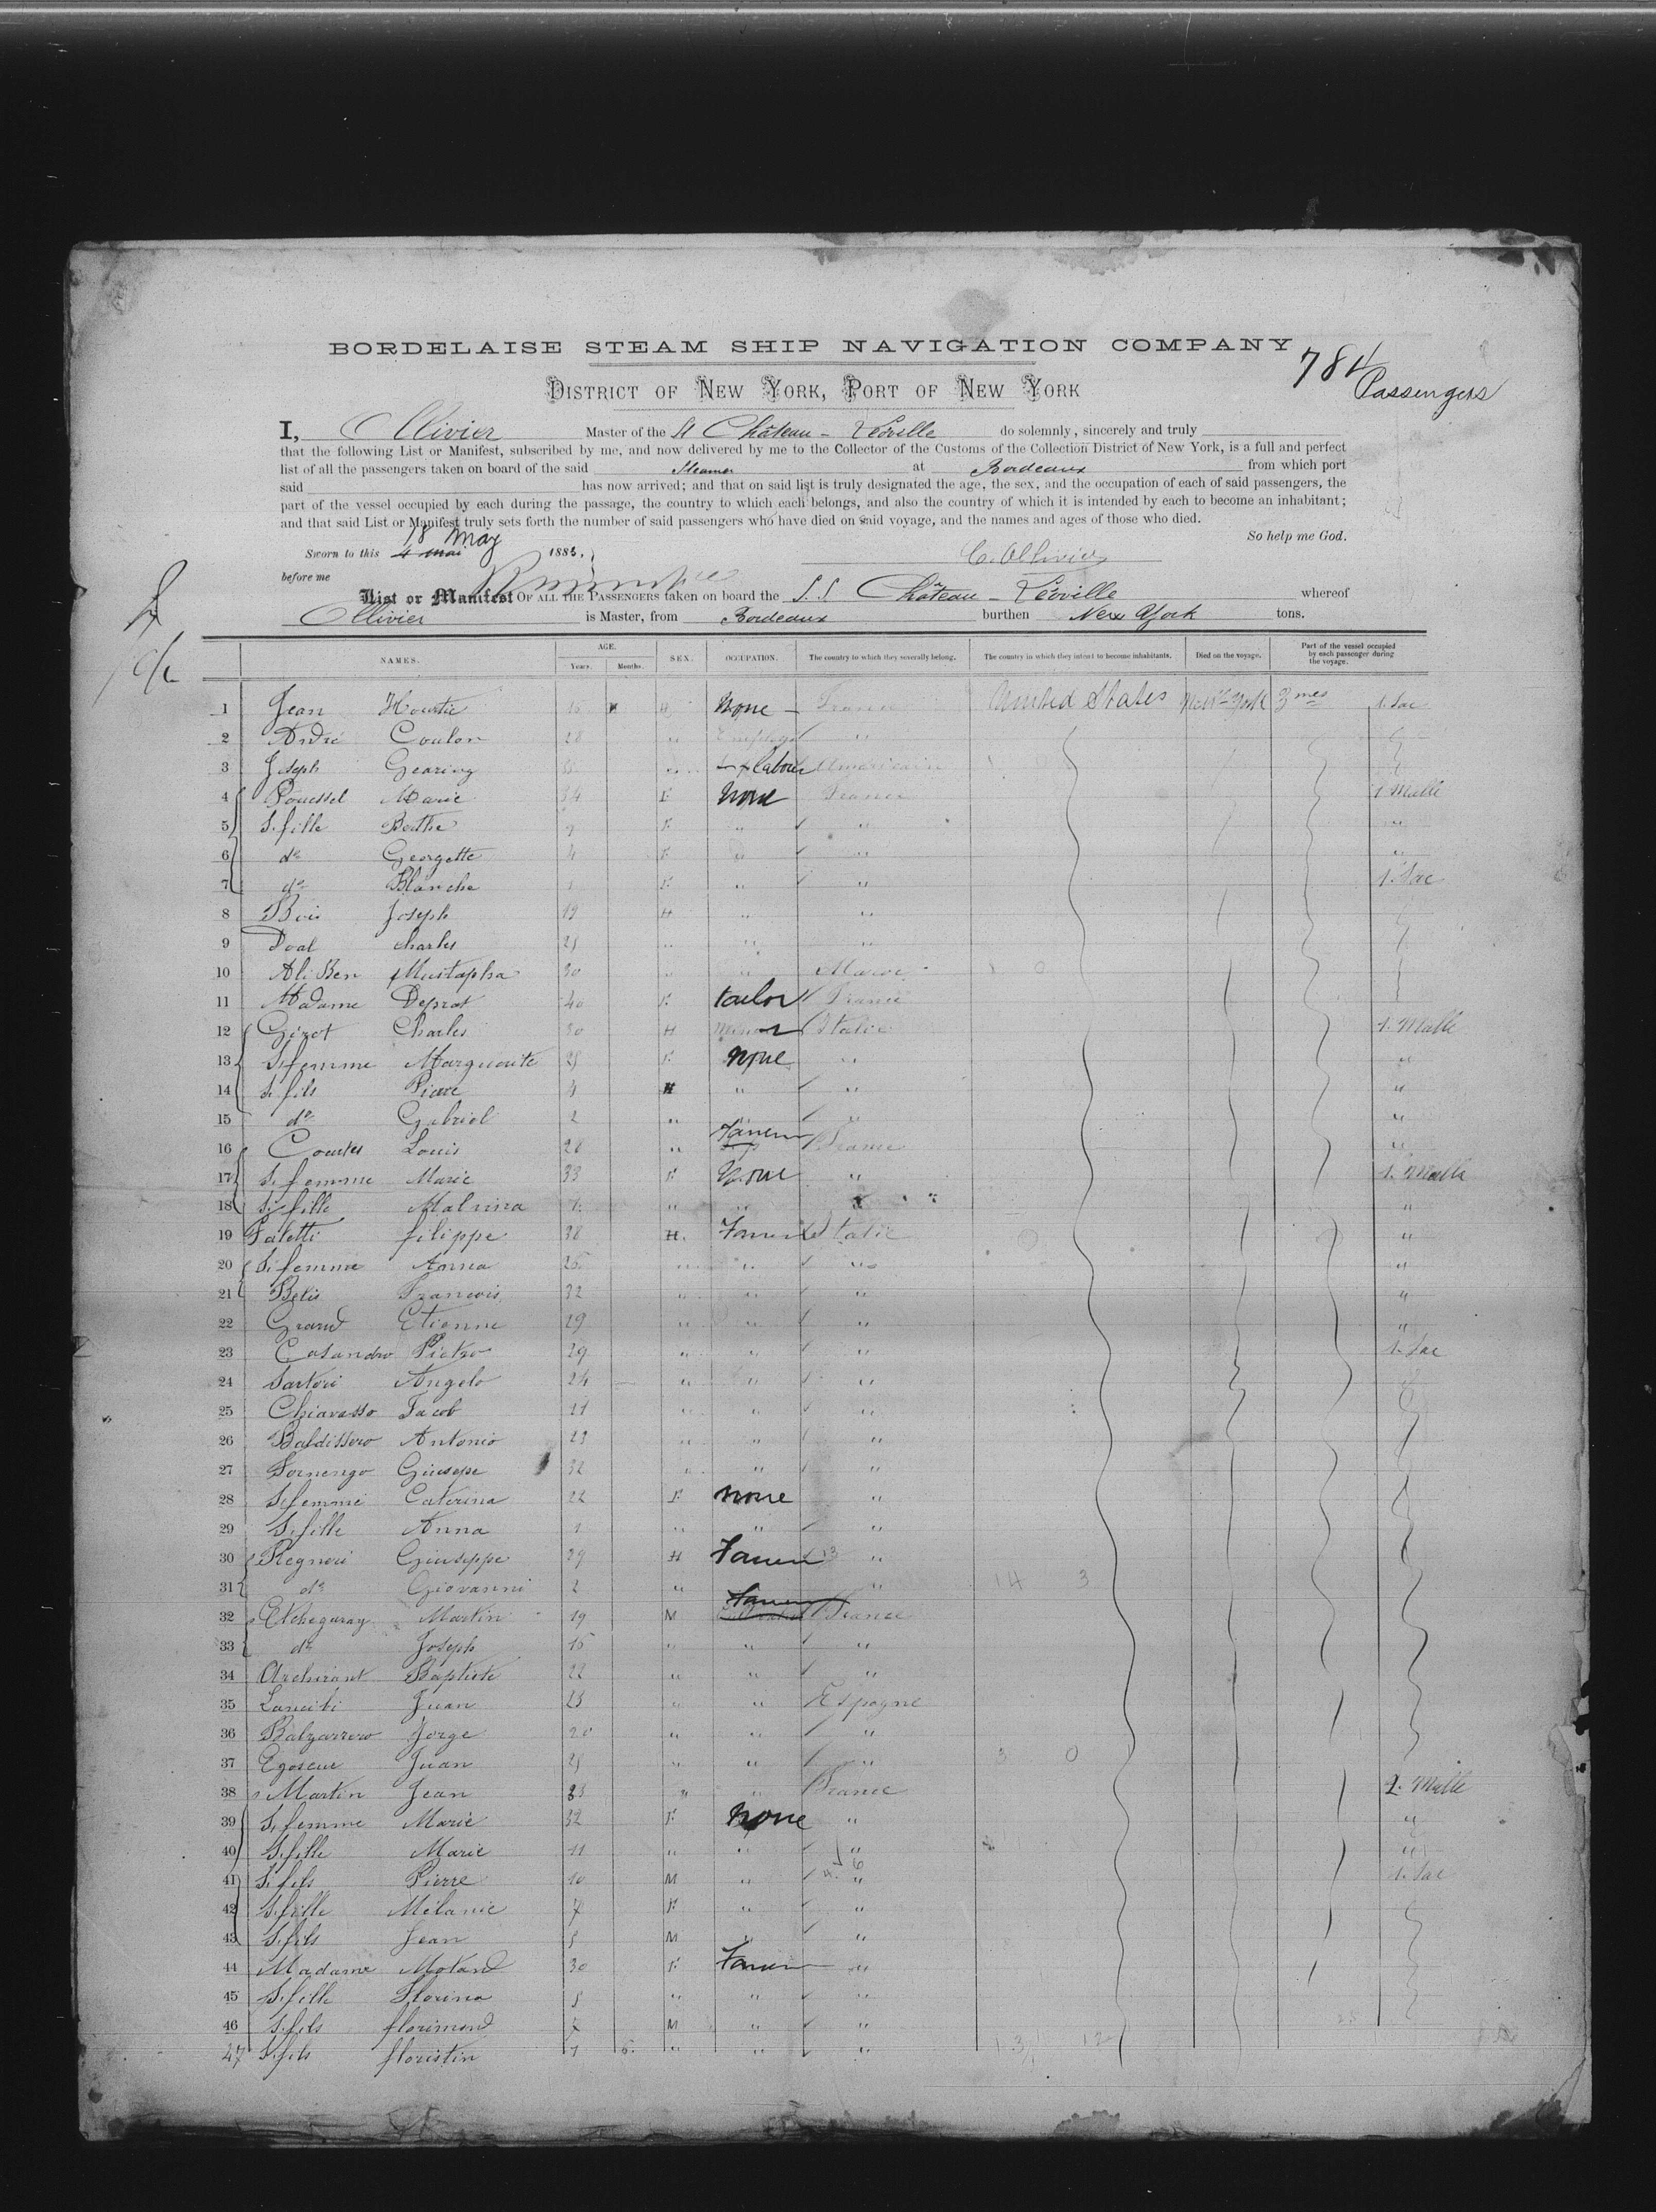 BORDELAISE STEAM SHIP NAVIGATION COMPANY
784 Passengers
DISTRICT OF NEW YORK, PORT OF NEW YORK
I, Ollivier Master of the St Château - Léoville do solemnly, sincerely and truly
that the following List or Manifest, subscribed by me, and now delivered by me to the Collector of the Customs of the Collection District of New York, is a full and perfect
list of all the passengers taken on board of the said Steamer at Bordeaux from which port
said has now arrived; and that on said list is truly designated the age, the sex, and the occupation of each of said passengers, the
part of the vessel occupied by each during the passage, the country to which each belongs, and also the country of which it is intended by each to become an inhabitant;
and that said List or Manifest truly sets forth the number of said passengers who have died on said voyage, and the names and ages of those who died.
So help me God.
18 May
Sworn to this 4 mai 1883. C. Ollivier
before me
List or Manifest OF ALL THE PASSENGERS taken on board the S.S Château - Léoville whereof
Ollivier is Master, from Bordeaux burthen New York tons.
NAMES. AGE. Years. Months. SEX. OCCUPATION. The country to which they severally belong. The country in which they intent to become inhabitants. Died on the voyage. Part of the vessel occupied by each passenger during the voyage.
1 Jean Hourtic H None France United States New York 3mes 1. Sac
2 André Coulon 28 " Employé "
3 Joseph Gearing labour Americain
4 Pouessel Marie 34 F None France 1 Malle
5 S. fille Berthe F " " "
6 do Georgette 4 F " " "
7 do Blanche F " " 1 Sac
8 Bois Joseph 19 H " "
9 Doal Charles " " "
10 Ali Ben Mustapha 30 " " Maroc
11 Madame Deprat 40 F tailor France
12 Girot Charles 30 H Italie 1. Malle
13 S. femme Marguerite F None " "
14 S. fils Pierre H " " "
15 do Gabriel 2 " " "
16 Courtes Louis " Farmer France "
17 S. femme Marie 33 F None " 1. Malle
18 S. fille Malvina " " " "
19 Faletti filippe 38 H. Farmer Italie "
20 S. femme Anna " " " "
21 Belis Francois 32 " " " "
22 Grand Etienne 29 " " " "
23 Casandro Pietro 29 " " " 1. Sac
24 Sartori Angelo 24 " " "
25 Chiavasso Jacob 21 " " "
26 Baldissero Antonio 23 " " "
27 Sornengo Giusepe 32 " " "
28 S. femme Caterina 22 F None "
29 S. fille Anna " " "
30 Regneri Giuseppe 29 H Farmer 13 "
31 do Giovanni 2 " " 14 3
32 Etchegaray Martin 19 M Farmer France
33 do Joseph 15 " " "
34 Baptiste 22 " " "
35 Juan 23 " " Espagne
36 Jorge 20 " " "
37 Egoscue Juan " " " 3 0
38 Martin Jean 33 " " France 1. Malle
39 S. femme Marie 32 F None " "
40 S. fille Marie 11 " " " "
41 S. fils Pierre 10 M " " 1. Sac
42 S. fille Mélanie 7 F " "
43 S. fils Jean 5 M " "
44 Madame Motard 30 F Farmer "
45 S. fille Florina " " "
46 S. fils florimond M " "
47 S. fils floristin 6 " " "